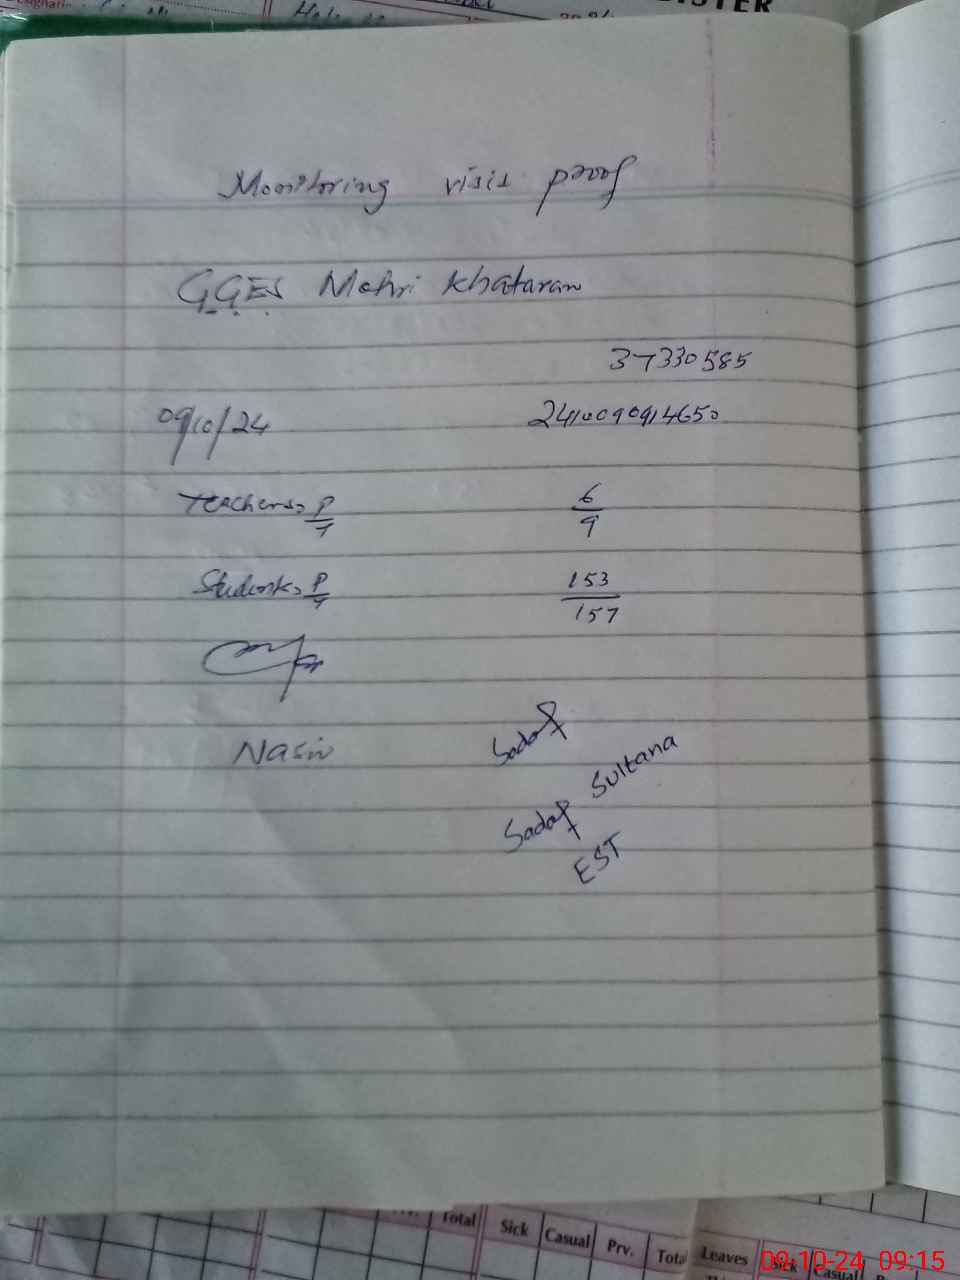 ISTER
Monitoring visit proof
GGES Mohri Khataran
37330585
09/10/24
2410090914650
Teachers, P/T
6/9
Students, P/T
153/157
Nasir
Sadaf
Sadaf Sultana
EST
Total Sick Casual Prv. Total Leaves Sick Casual
09-10-24 09:15